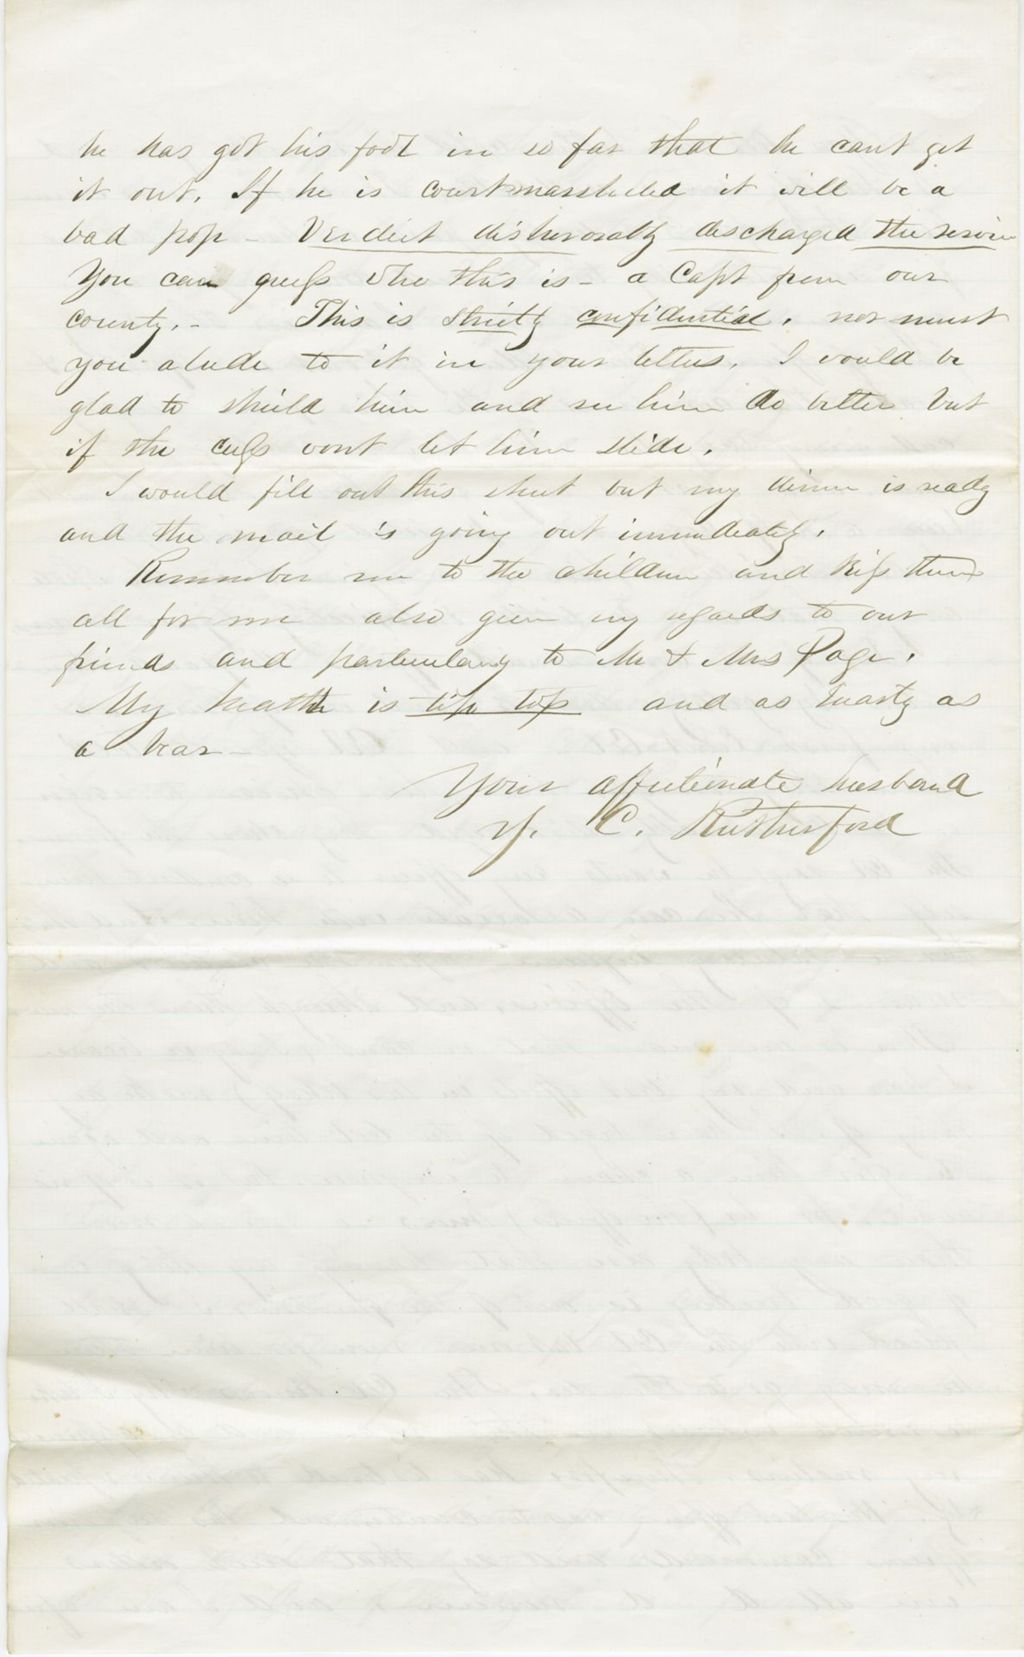 he has got his foot in so far that he cant get
it out. If he is courtmarshaled it will be a
bad pop - Verdict dishonorably discharged the service
You can guess who this is - a Capt from our
county. - This is strictly confidential, nor must
you alude to it in your letters. I would be
glad to shield him and see him do better but
if the cuss wont let him slide.
I would fill out this sheet but my dinner is ready
and the mail is going out immediately.
Remember me to the children and kiss them
all for me also give my regards to our
friends and particularly to Mr & Mrs Page.
My health is tip top and as hearty as
a bear -
Your affectionate husband
J. C. Rutherford